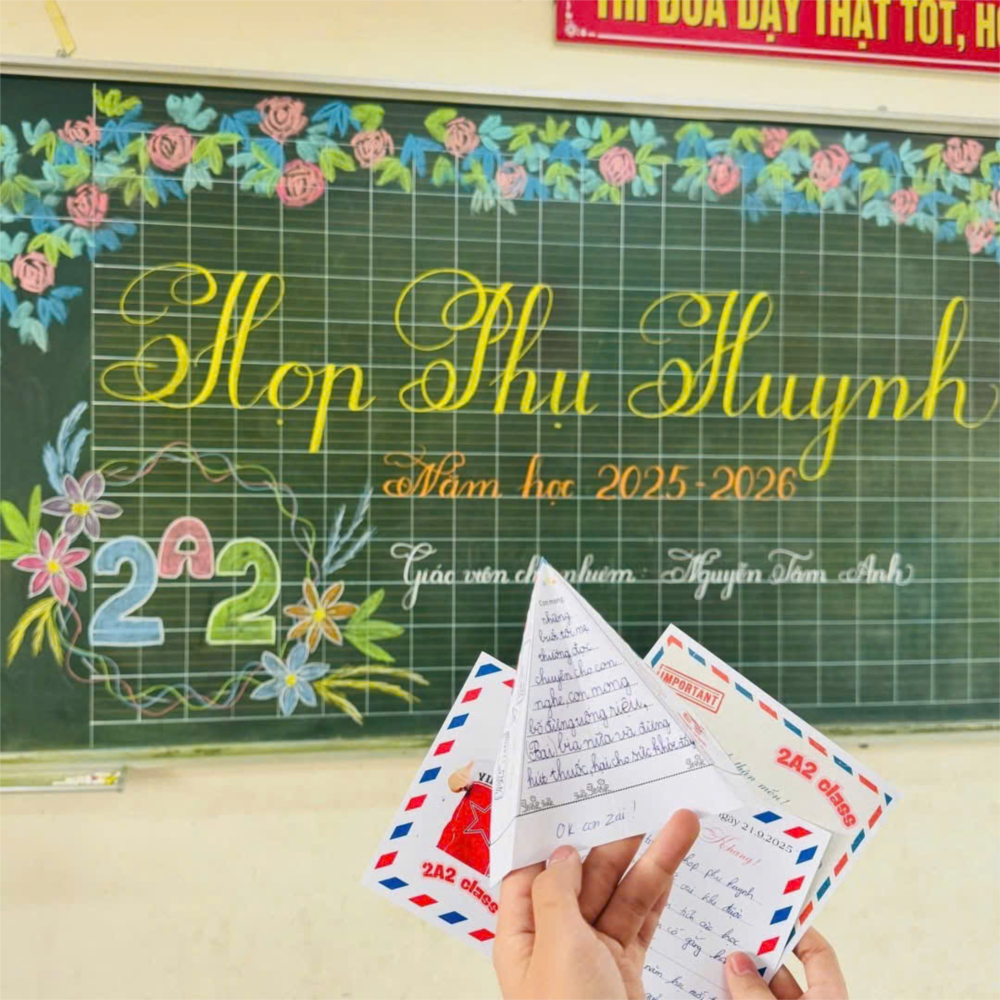 THI ĐUA DẠY THẬT TỐT, H
Họp Phụ Huynh
Năm học 2025-2026
2A2
Giáo viên chủ nhiệm: Nguyễn Tâm Anh
Con mong
những
buổi tối mẹ
thường đọc
chuyện cho con
nghe, con mong
bố đừng uống riệu,
Bai bia nữa và đừng
hút thuốc, hại cho sức khỏe đấy
OK con zai!
IMPORTANT
2A2 class
2A2 class
ngày 21.9.2025
Khang!
họp phụ huynh
cố gắng